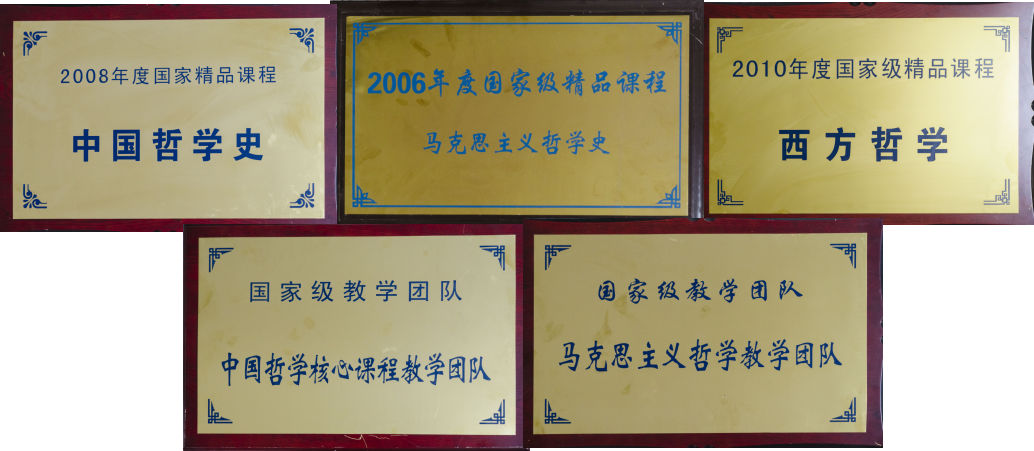 2008年度国家精品课程
中国哲学史
2006年度国家级精品课程
马克思主义哲学史
2010年度国家级精品课程
西方哲学
国家级教学团队
中国哲学核心课程教学团队
国家级教学团队
马克思主义哲学教学团队